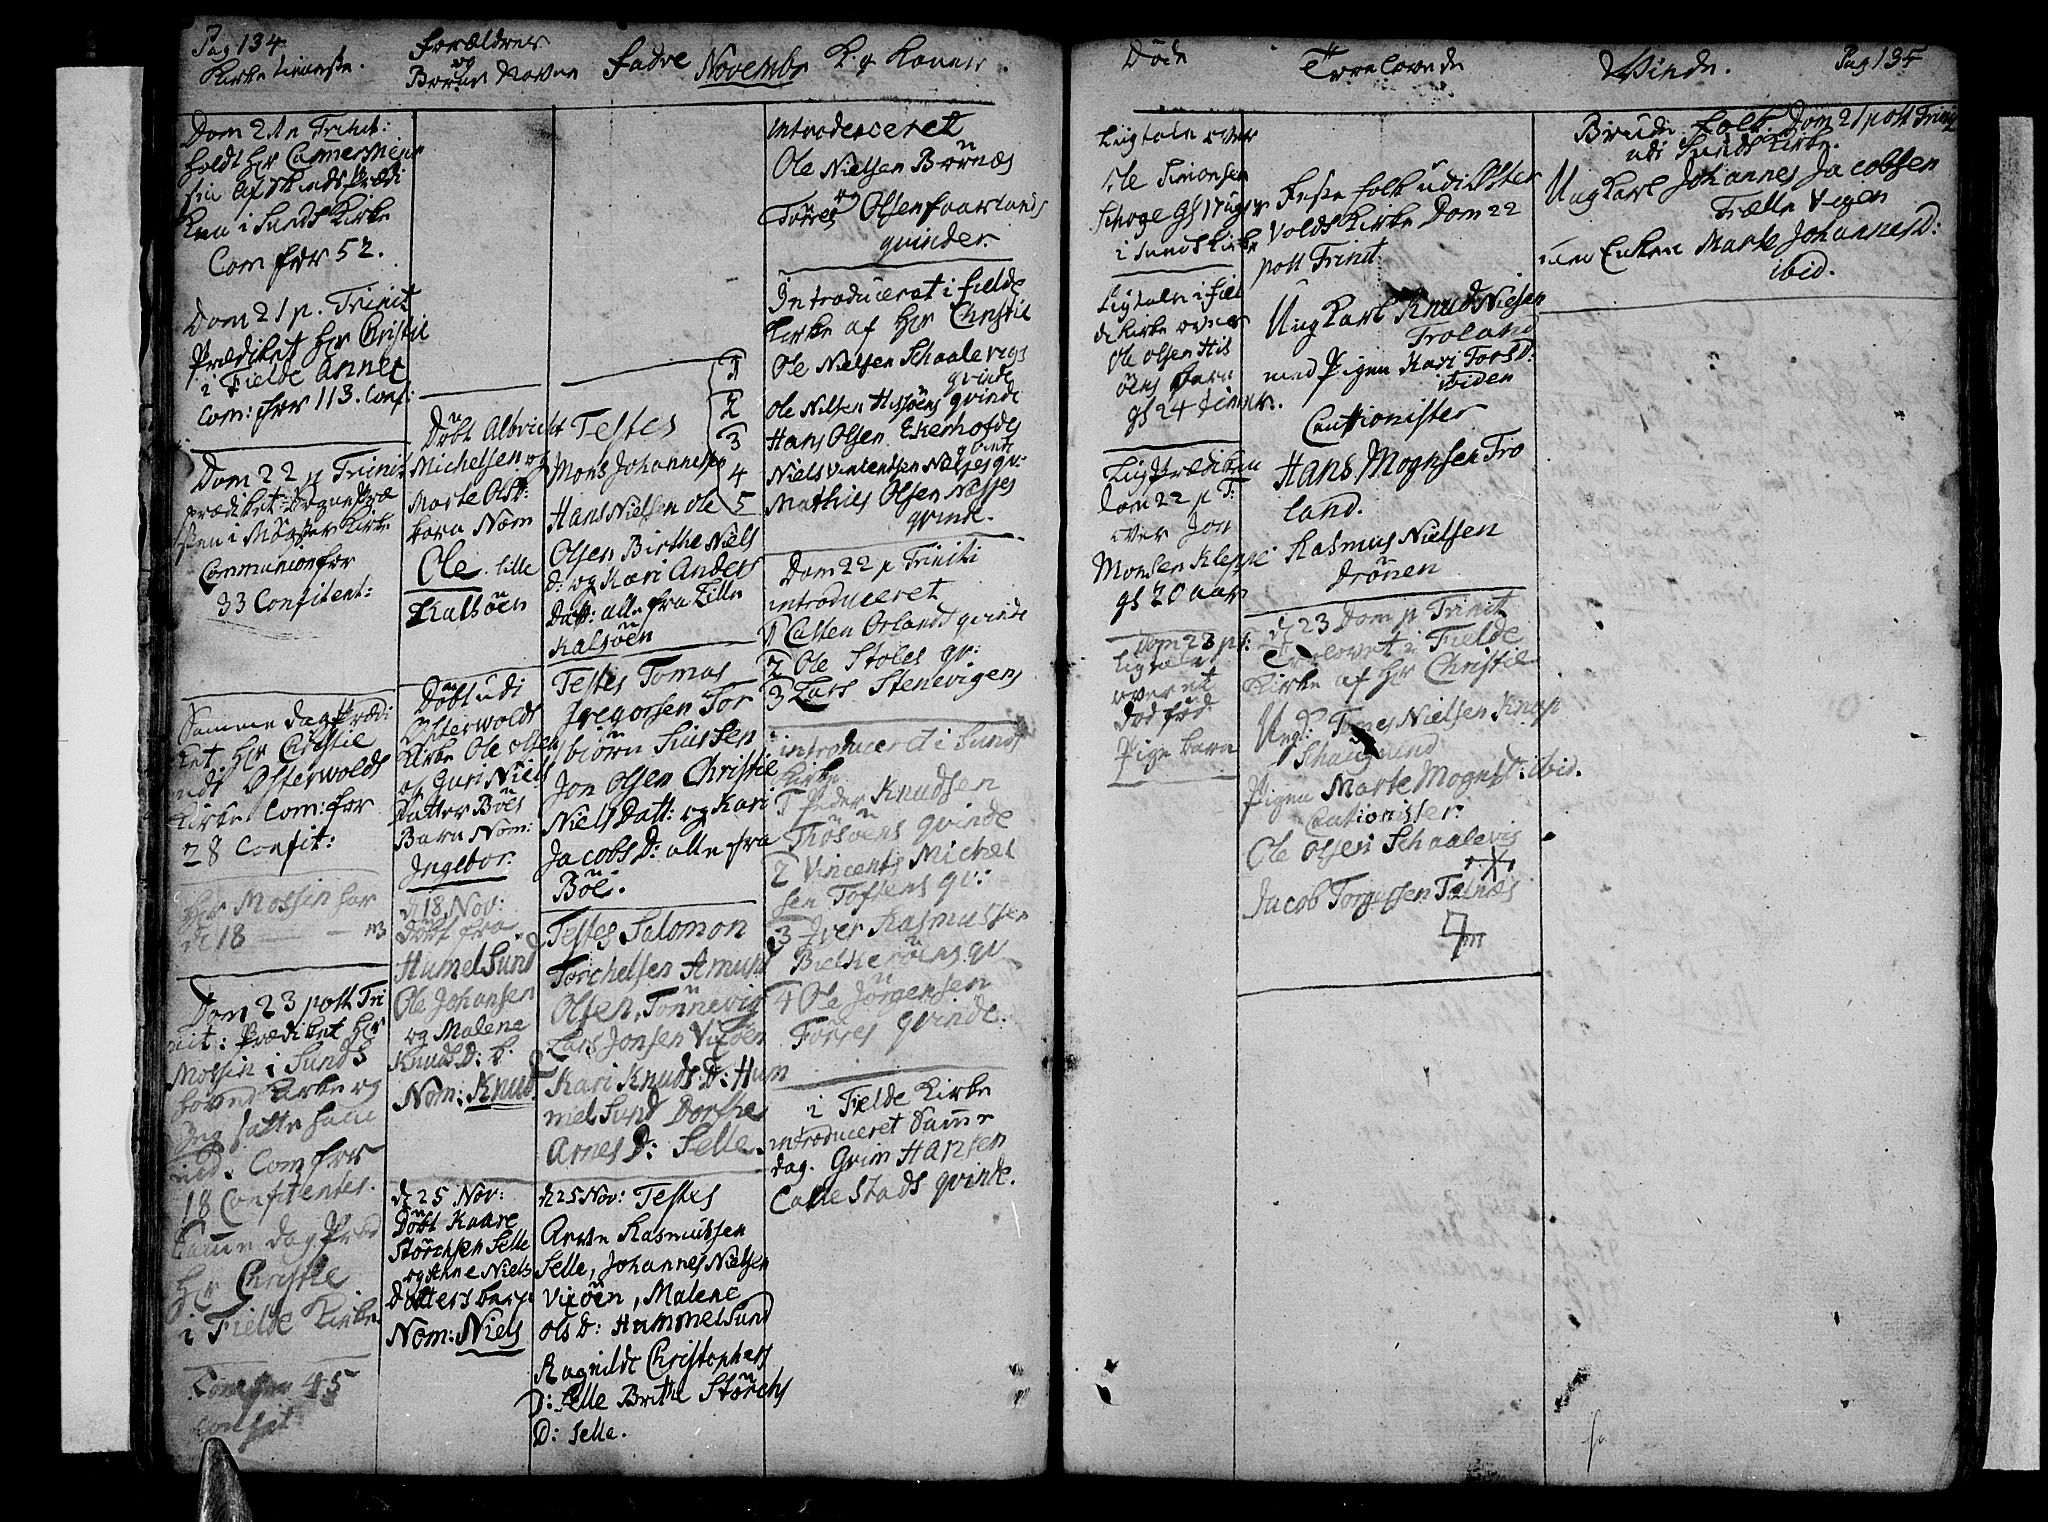 Pag 134
Kirke tieneste.
Forældres
og
Børns Navne
Fadre
Novembr
K. q Koner
Dom 21 p Trinit:
holdt Hr
sin Afskeds Prædi
ken i Sunds Kirke
Com for 52.
Dom 21 p. Trinit
Prædiket Hr Cristie
i Fielde Annex
Com: for 113. Conf:
Dom 22 p Trinit
prædiket Sogne Præ
sten i Møgster Kirke
Communion for
33 Confitent:
Samme dag Prædi
ket Hr Cristie
udi Østerwolds
Kirke Com: for
28 Confit:
Hr Mossin for
d 18
Dom 23 post Tri
nit: Prædiket Hr
Mossin i Sunds
hoved Kirke og
Jeg satte ham
ind. Com for
18 Confitentes.
Samme dag Præd
Hr Christie
i Fielde Kirke
Com for 45
Confit
Døbt Albricht
Michelsen og
Marte Olsd:
barn Nom
Ole. Lille
Kalsøen
Døbt udi
Østerwolds
Kirke Ole Olsen
og Guri Niels
datter Bøes
Barn Nom:
Ingebor.
d 18 Nov:
Døbt fra
Humelsund
Ole Johansen
og Malene
Knuds D: b.
Nom: Knud
d 25 Nov:
Døbt Kaare
Størchsen Selle
og Anne Niels
Dotters barn
Nom: Niels
Testes
Mons Johannesen
Hans Nielsen Ole
Olsen Birthe Niels
d: og Kari Anders
datt: alle fra Lille
Kalsøen
Testes Tomas
Gregorsen Tor
biørn Siursen
Jon Olsen Christie
Niels Datt: og Kari
Jacobs D: alle fra
Bøe.
Testes Salomon
Torchelsen Amund
Olsen, Tønnevig
Lars Jonsen Vixøen
Kari Knuds D: Hum
mel Sund Dorthe
Arnes D: Selle.
d 25 Nov: Testes
Arne Rasmussen
Selle, Johannes Nielsen
Vixøen, Malene
Ols D: Hummelsund
Ragnilde Christophers
D: Selle Brithe Størchs
D: Selle.
Introduceret
Ole Nielsen Børnæs
og
Tørres Olsen Faarlands
qvinder.
Introduceret i Fielde
Kirke af Hr Christie
1 Ole Nielsen Schaalevigs
qvinde
2 Ole Nilsen Hissøens qvinde
3 Hans Olsen Ekerhofdes
qvinde
4 Niels Vincendsen Næsses qv:
5 Mathies Olsen Næsses
qvinde.
Dom 22 p Triniti
introduceret
1 Casten Orlands qvinde
2 Ole Stoles qv:
3 Lars Stenevigens
introduceret i Sunds
Kirke
1 Peder Knudsen
Thøsøens qvinde
2 Vincents Michel
sen Toftens qv:
3 Iver Rasmussen
Bielkerøens qv
4 Ole Jørgensen
Førres qvinde.
i Fielde Kirke
introduceret Samme
dag. Grim Hansen
Callestads qvinde.
Døde
Troelovede
Viede.
Pag 135
Liigtale over
Ole Simonsen
Schoge gl 17 uger
i Sunds Kirke
Ligtalen i Fiel
de Kirke over
Ole Olsen His
øens Barn
gl 24 timer.
Liigprædiken
Dom 22 p T:
over Jon
Monsen Kleppe
gl 20 aar
Dom 23 p:
Ligtale
over et
død fød
Pige barn
Feste folk udi Øster
Volds Kirke Dom 22
post Trinit
Ung Karl Knud Nielsen
Troland
med Pigen Kari Tors D:
ibiden
Cautionister
Hans Mognsen Tro
land.
Rasmus Nielsen
Drønen
d 23 Dom p Trinit
Trolovet i Fielde
Kirke af Hr Christie
Ungk: Tomes Nielsen Knap
Skaugsund
Pigen Marte Mogns D: ibid.
Cautionister:
Ole Olsen Schaalevig
Jacob Torgersen Telnæs
Brude folk Dom 21 post Trinit
udi Sunds Kirke.
Ung Karl Johannes Jacobsen
Trælle Vigen
med Enken Marte Johannes D:
ibid.